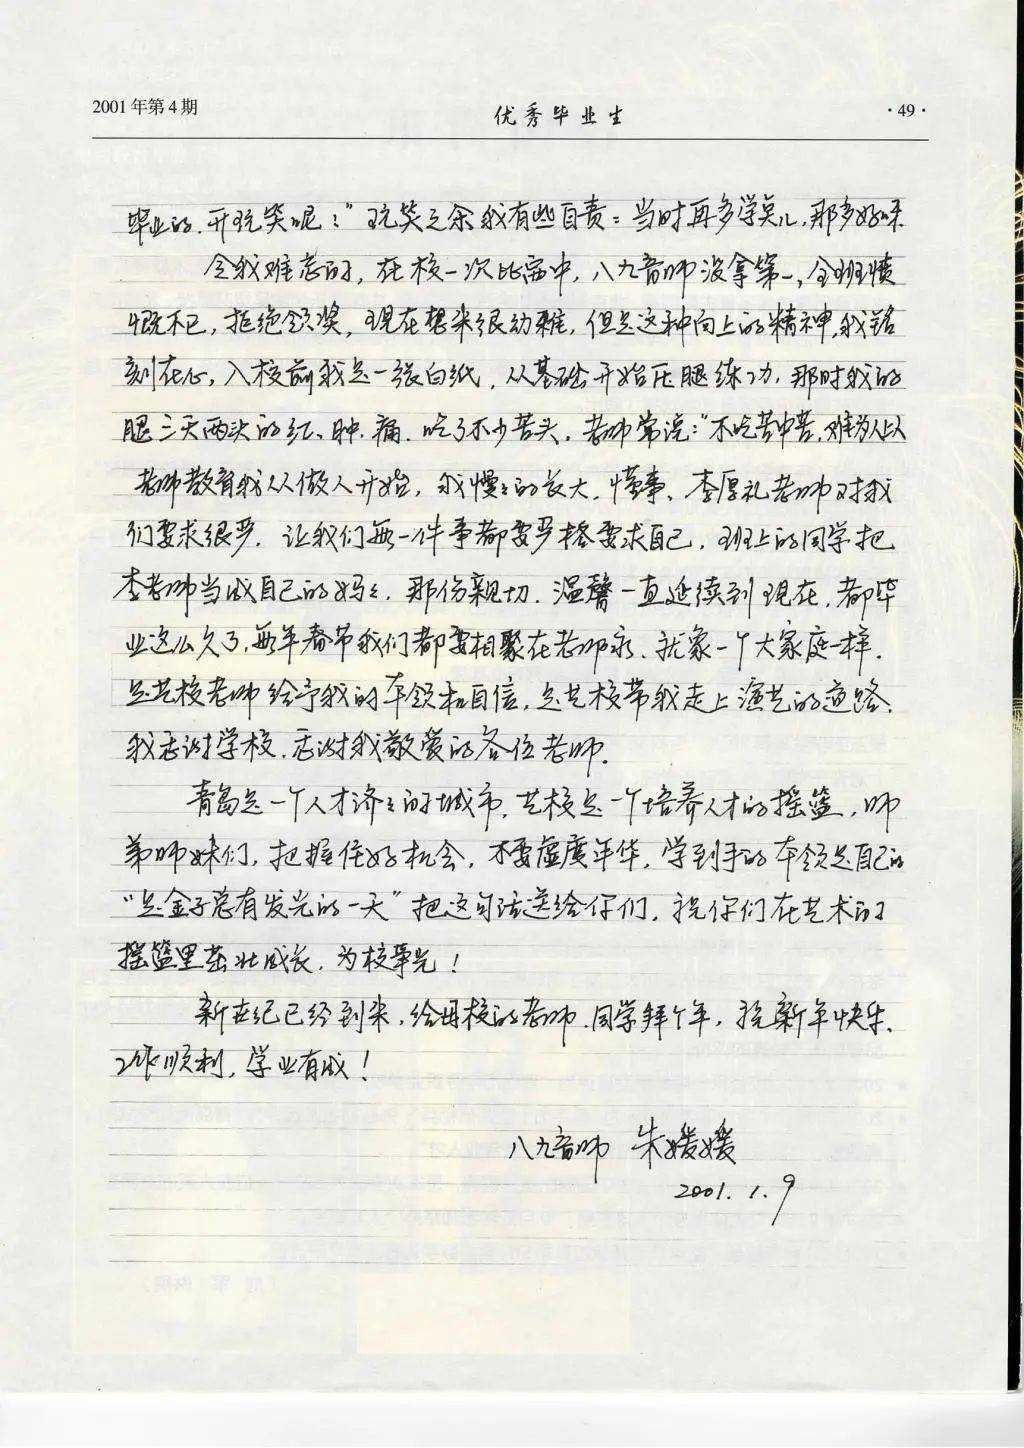 2001年第4期
优秀毕业生
·49·
毕业的、开玩笑呢！”玩笑之余我有些自责：当时再多学点儿，那多好呀
令我难忘的，在校一次比赛中，八九音师没拿第一，全班愤
慨不已，拒绝领奖，现在想来很幼稚，但是这种向上的精神，我铭
刻在心，入校前我是一张白纸，从基础开始压腿练功，那时我的
腿三天两头的红、肿、痛、吃了不少苦头，老师常说：“不吃苦中苦，难为人上人
老师教育我从做人开始，我慢慢的长大，懂事、李厚礼老师对我
们要求很严，让我们每一件事都要严格要求自己，班上的同学把
李老师当成自己的妈妈，那份亲切、温馨一直延续到现在，都毕
业这么久了，每年春节我们都要相聚在老师家、就象一个大家庭一样，
是艺校老师给予我的本领和自信，是艺校带我走上演艺的道路、
我感谢学校、感谢我敬爱的各位老师。
青岛是一个人才济济的城市，艺校是一个培养人才的摇篮，师
弟师妹们，把握住好机会，不要虚度年华，学到手的本领是自己的
“是金子总有发光的一天”把这句话送给你们，祝你们在艺术的
摇篮里茁壮成长，为校争光！
新世纪已经到来，给母校的老师、同学拜个年，祝新年快乐、
工作顺利，学业有成！
八九音师 朱媛媛
2001.1.9